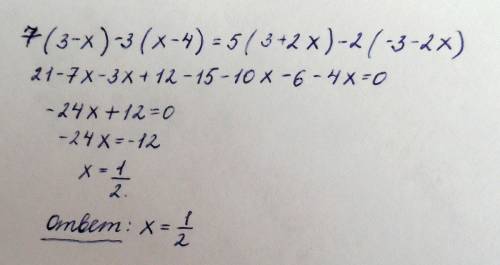 7(3-x)-3(x-4)=5(3+2x)-2(-3-2x)
21-7x-3x+12-15-10x-6-4x=0
-24x+12=0
-24x=-12
x=1/2.
Ответ: x=1/2